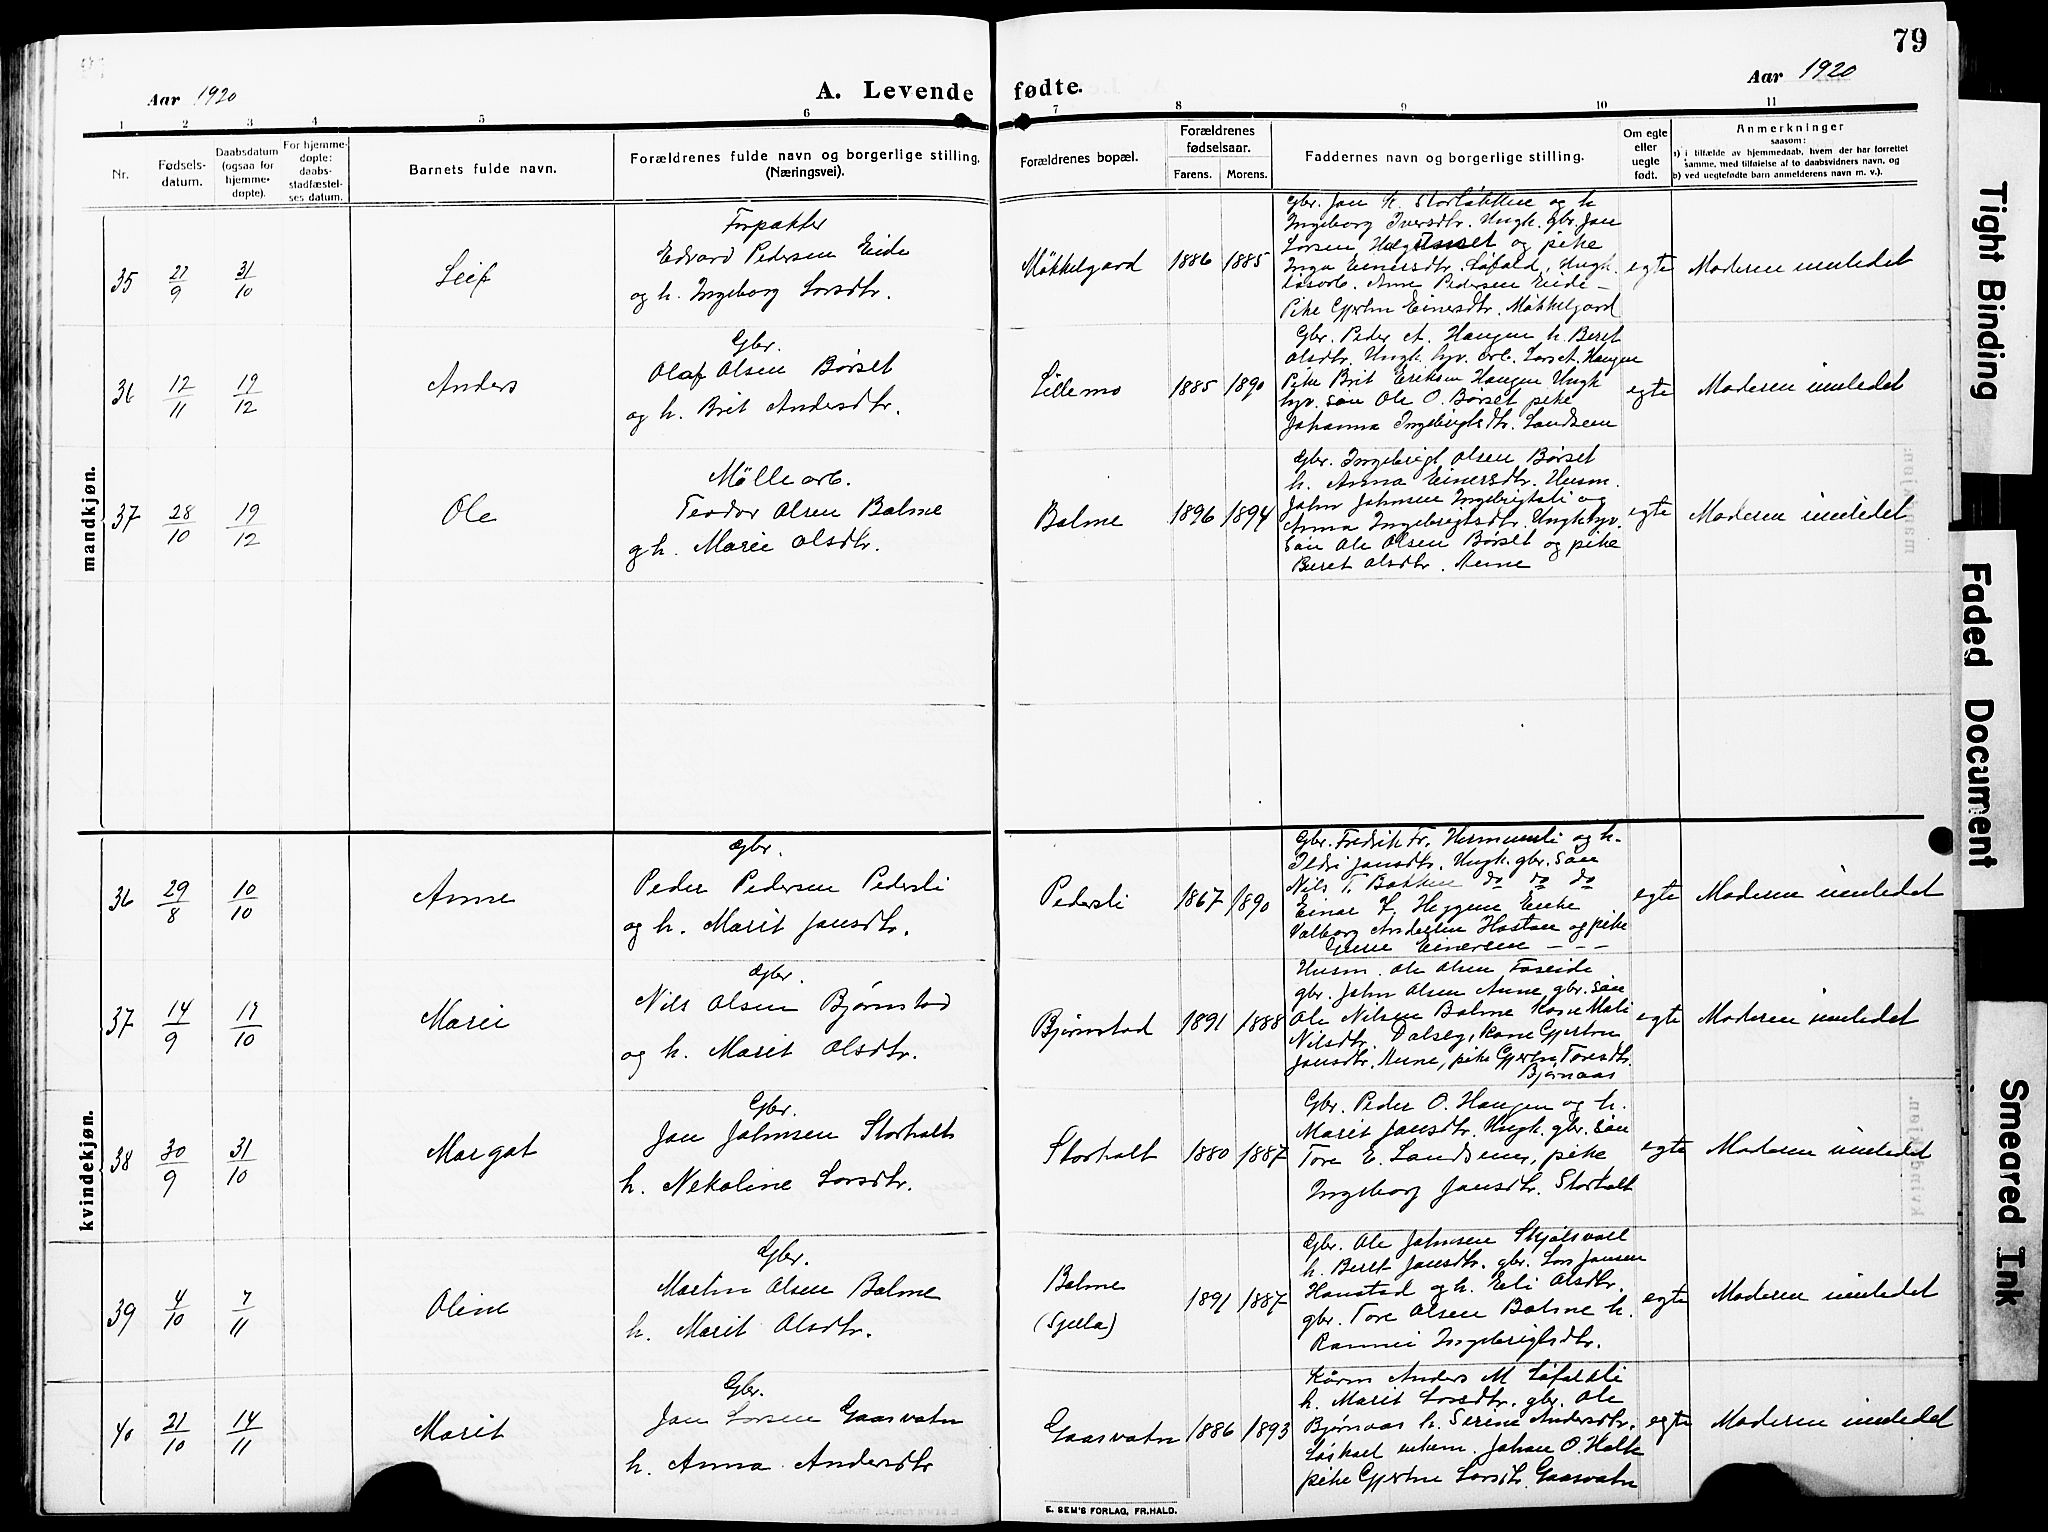 79
Aar 1920
A. Levende fødte.
Aar 1920
1 2 3 4 5 6 7 8 9 10 11
Nr.
Fødsels-
datum.
Daabsdatum
(ogsaa for
hjemme-
døpte).
For hjemme-
døpte:
daabs-
stadfæstel-
ses datum.
Barnets fulde navn.
Forældrenes fulde navn og borgerlige stilling.
(Næringsvei).
Forældrenes bopæl.
Forældrenes
fødselsaar.
Farens. Morens.
Faddernes navn og borgerlige stilling.
Om egte
eller
uegte
født.
Anmerkninger
saasom:
a) i tilfælde av hjemmedaab, hvem der har forrettet
samme, med tilføielse af to daabsvidners navn, og
b) ved uegtefødte barn anmelderens navn m. v.).
mandkjøn.
35 27/9 31/10 Leif
Forpakter
Edvard Pedersen Eide
og h. Ingeborg Larsdtr.
Møkkelgard 1886 1885
Gbr. Jan K. Storløkken og h
Ingeborg Iversdtr. Ungk. gbr Jan
Larsen Hægaasset og pike
Inga Einersdtr. Løfald, Ungk.
Løsarb. Arne Pedersen Eide
Pike Gjertru Einersdtr. Møkkelgard
egte Moderen innledet
36 12/11 19/12 Anders
Gbr.
Olaf Olsen Børset
og h. Brit Andersdtr.
Lillemo 1885 1890
Gbr. Peder A. Haugen h. Beret
Olsdtr. Ungk. hjv. arb. Lars A. Haugen
Pike Brit Eriksen Haugen Ungk
hjv. søn Ole O. Børset pike
Johanna Ingebrigtsdtr. Landsem
egte Moderen innledet
37 28/10 19/12 Ole
Møllearb.
Teodor Olsen Balme
g h. Marie Olsdtr.
Balme 1896 1894
Gbr. Ingebrigt Olsen Børset
h. Anna Einersdtr. Husm.
John Johnsen Ingebrigtsli og
Anna Ingebrigtsdtr. Ungk hjv.
søn Ole Olsen Børset og pike
Beret Olsdtr.
egte Moderen innledet
kvindekjøn.
36 29/8 10/10 Anne
Gbr.
Peder Pedersen Pedersli
og h. Marit Jansdtr.
Pedersli 1867 1890
Gbr. Fredrik Fr. Hermunsli og h.
Ildri Jansdtr. Ungk. gbr. søn
Nils T. Bakken do do do
Einar K. Heggem Enke
Valborg Andersen Hastan og pike
Einersen — — —
egte Moderen innledet
37 14/9 17/10 Marie
Gbr.
Nils Olsen Bjørnstad
og h. Marit Olsdtr.
Bjørnstad 1891 1888
Husm. Ole Olsen Foseide
gbr. John Olsen Aune gbr. søn
Ole Nilsen Balme Kone Mali
Nilsdtr. Dalseg, kone Gjertru
Jansdtr. Aune, pike Gjertru Toresdtr.
Bjørnaas
egte Moderen innledet
38 30/9 31/10 Margot
Gbr.
Jan Johnsen Storholt
h. Nekoline Larsdtr.
Storholt 1880 1887
Gbr. Peder O. Haugen og h.
Marit Jansdtr. Ungk. gbr. søn
Tore E. Landsem, pike
Ingeborg Jansdtr. Storholt
egte Moderen innledet
39 4/10 7/11 Oline
Gbr.
Martin Olsen Balme
h. Marit Olsdtr.
Balme
(Sjella)
1891 1887
Gbr. Ole Johnsen Skjølsvold
h. Beret Jansdtr. gbr. Lars Jansen
Hanstad og h. Eli Olsdtr.
gbr. Tore Olsen Balme h.
Rannei Ingebrigtsdtr.
egte Moderen innledet
40 21/10 14/11 Marit
Gbr.
Jan Larsen Gaasvatn
h. Anna Andersdtr
Gaasvatn 1886 1893
Kårm Anders M Løfaldli
h. Marit Larsdtr. gbr. Ole
Bjørnaas h. Serine Andersdtr.
Løskael enkem. Johan O. Holte
pike Gjertru Larsdtr. Gaasvatn
egte Moderen innledet
E. SEM'S FORLAG, FR.HALD.
Tight Binding
Faded Document
Smeared Ink